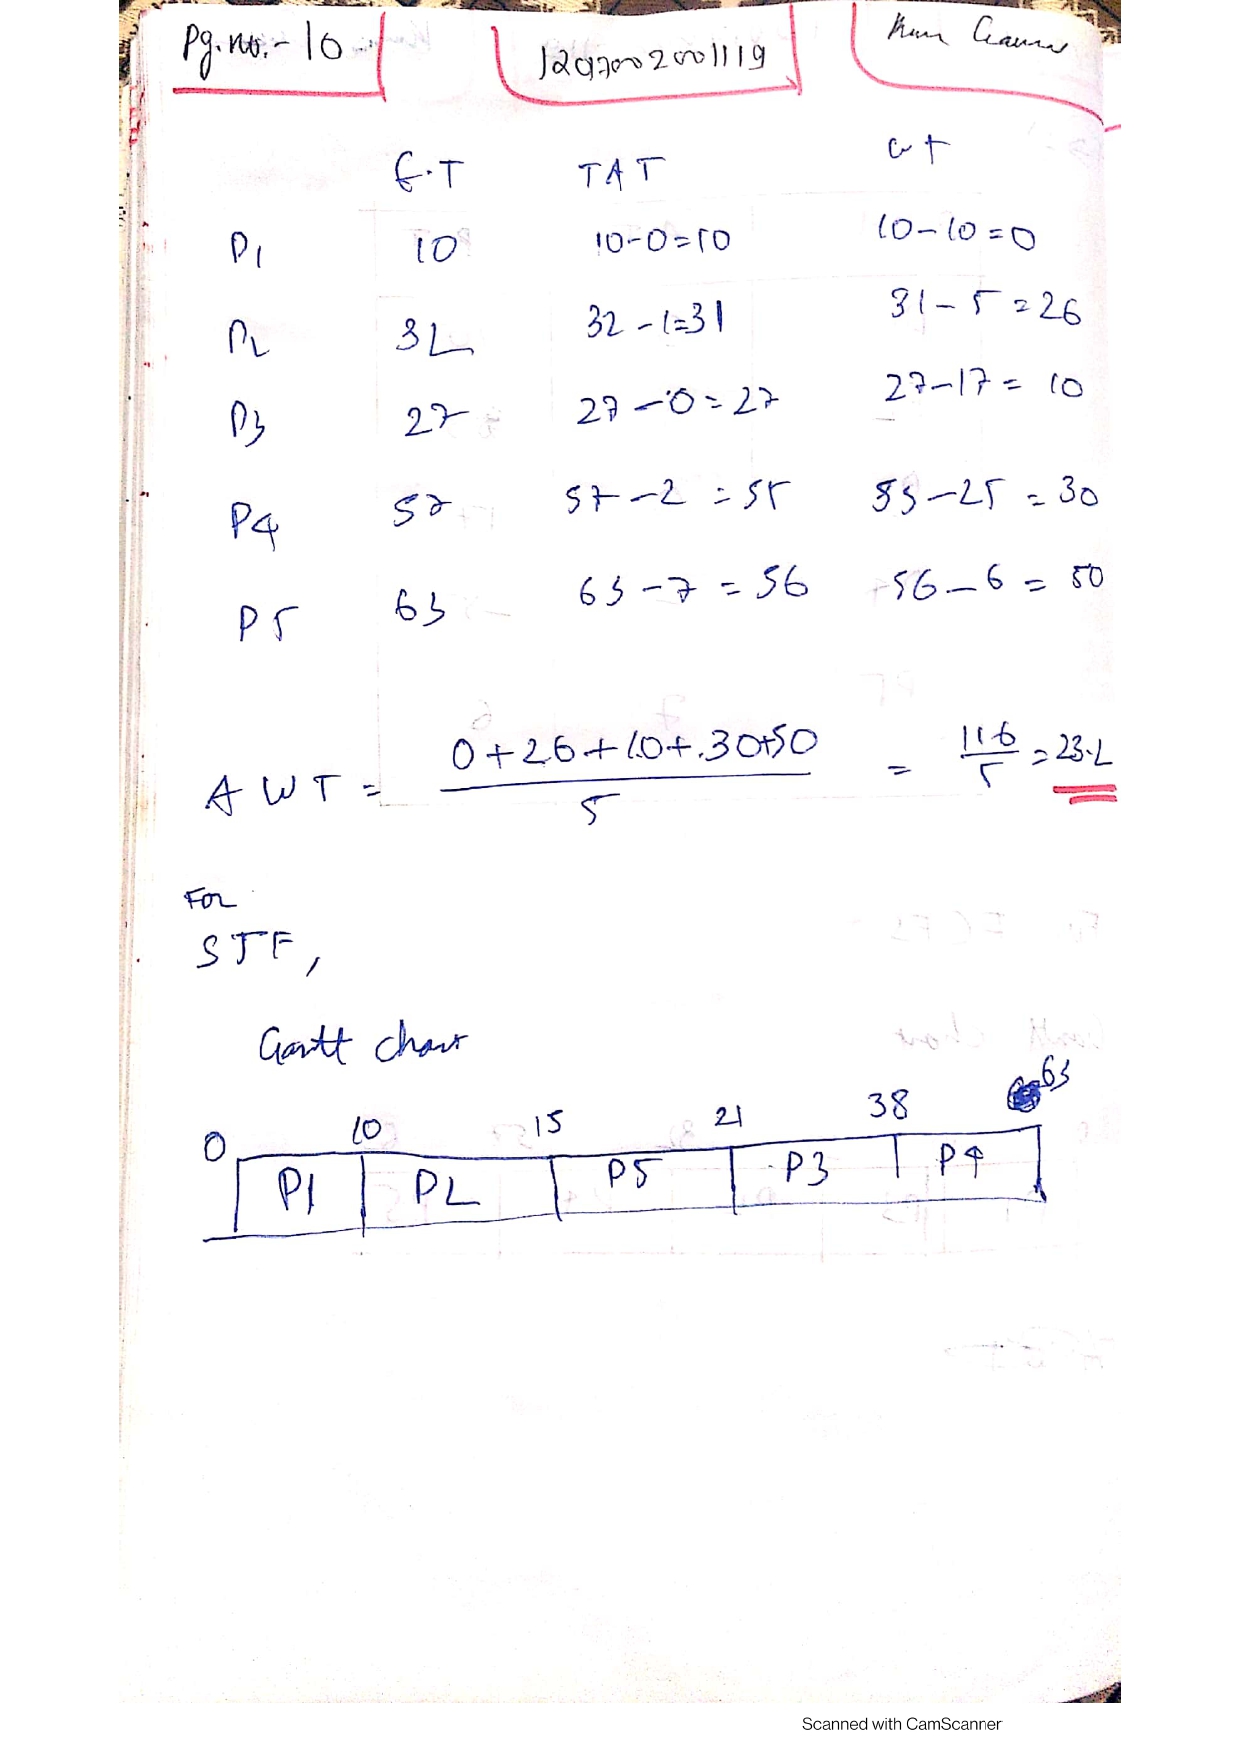 Pg. no. - 10
12070002001119
E.T TAT WT
P1 10 10-0=10 10-10=0
P2 32 32-1=31 31-5=26
P3 27 27-0=27 27-17=10
P4 57 57-2=55 55-25=30
P5 63 63-7=56 56-6=50
AWT = 0+26+10+30+50 / 5 = 116/5 = 23.2
For
SJF,
Gantt chart
0 10 15 21 38 63
P1 P2 P5 P3 P4
Scanned with CamScanner